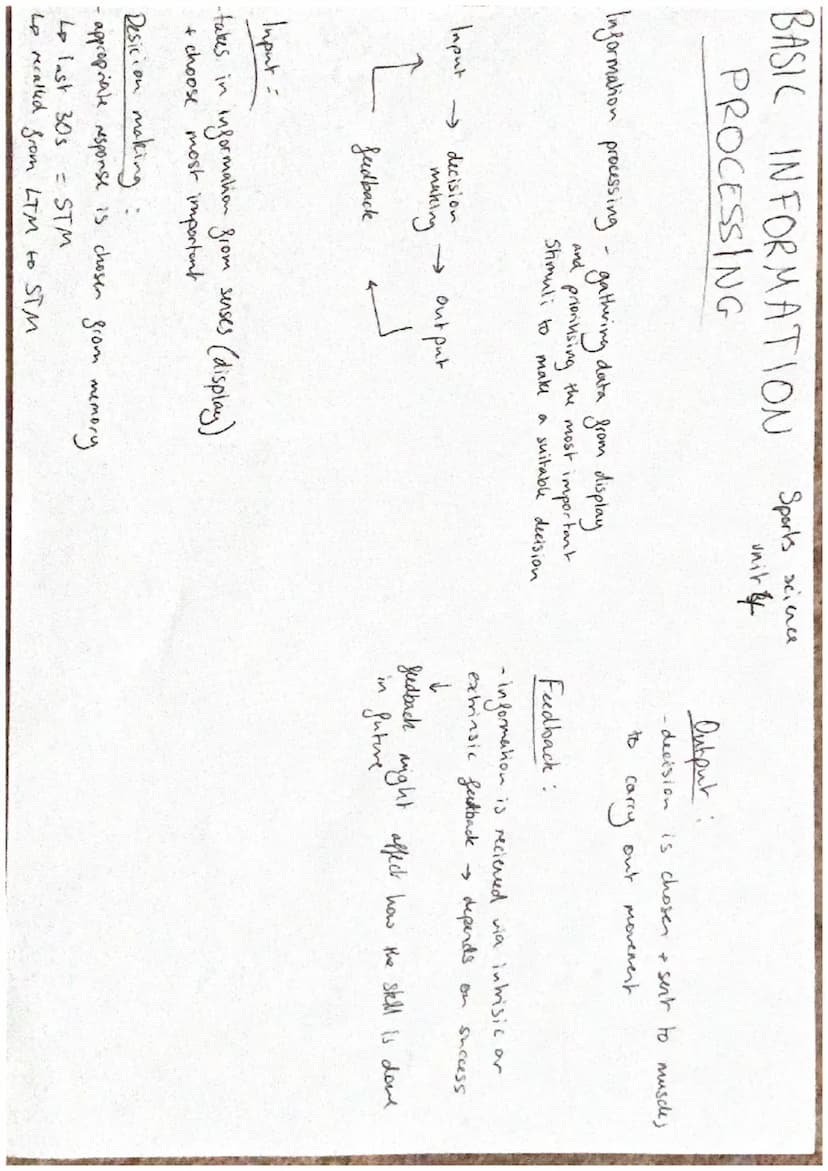 BASIC INFORMATION
PROCESSING
Sports science
unit 4
Information processing - gathering data from display
and prioritising the most important
stimuli to make a suitable decision
Input → decision
making → output
feedback
Input:
- takes in information from senses (display)
+ choose most important
Desicion making:
- appropriate response is chosen from memory
↳ last 30s = STM
↳ recalled from LTM to STM
Output:
- decision is chosen + sent to muscles
to carry out movement
Feedback:
- information is recieved via intrisic or
extrinsic feedback → depends on success
↓
feedback might affect how the skill is done
in future